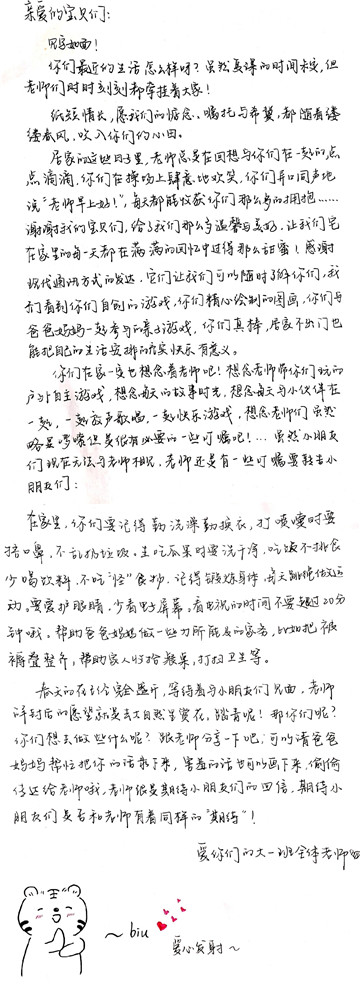 亲爱的宝贝们:
见字如面!
你们最近的生活怎么样呀?虽然复课的时间未定,但
老师们时时刻刻都牵挂着大家!
纸短情长,愿我们的惦念、嘱托与希冀,都随着
缕春风,吹入你们的心田。
居家的这些日子里,老师总是在回想与你们在一起的点
点滴滴,你们在操场上肆意地欢笑,你们异口同声地
说“老师早上好!”,每天都能收获你们那么多的拥抱……
谢谢我的宝贝们,给了我们那么多温馨与美好,让我们宅
在家里的每一天都在满满的回忆中过得那么甜蜜!感谢
现代通讯方式的发达,它们让我们可以随时了解你们,我
们看到你们自创的游戏,你们精心绘制的图画,你们与
爸爸妈妈一起参与的亲子游戏,你们真棒,居家不出门也
能把自己的生活安排的充实快乐有意义。
你们在家一定也想念着老师吧!想念老师带你们玩的
户外自主游戏,想念每天的故事时光,想念每天与小伙伴在
一起,一起放声歌唱,一起快乐游戏,想念老师们虽然
略显啰嗦但是很有必要的一些叮嘱吧!…虽然小朋友
们现在无法与老师相见,老师还是有一些叮嘱要转告小
朋友们:
在家里,你们要记得勤洗澡勤换衣,打喷嚏时要
捂口鼻,不乱扔垃圾。生吃瓜果时要洗干净,吃饭不挑食
少喝饮料,不吃“怪”食物。记得锻炼身体,每天跳绳做运
动,要爱护眼睛,少看电子屏幕,看电视的时间不要超过20分
钟哦。帮助爸爸妈妈做一些力所能及的家务,比如把被
褥叠整齐,帮助家人收拾餐桌,打扫卫生等。
春天的花已经完全盛开,等待着与小朋友们见面,老师
解封后的愿望就是去大自然里赏花,踏青呢!那你们呢?
你们想去做些什么呢?跟老师分享一下吧,可以请爸爸
妈妈帮忙把你的话录下来,害羞的话也可以画下来,偷偷
传送给老师哦,老师很是期待小朋友们的回信,期待小
朋友们是否和老师有着同样的“期待”!
爱你们的大一班全体老师
~biu
爱心发射~